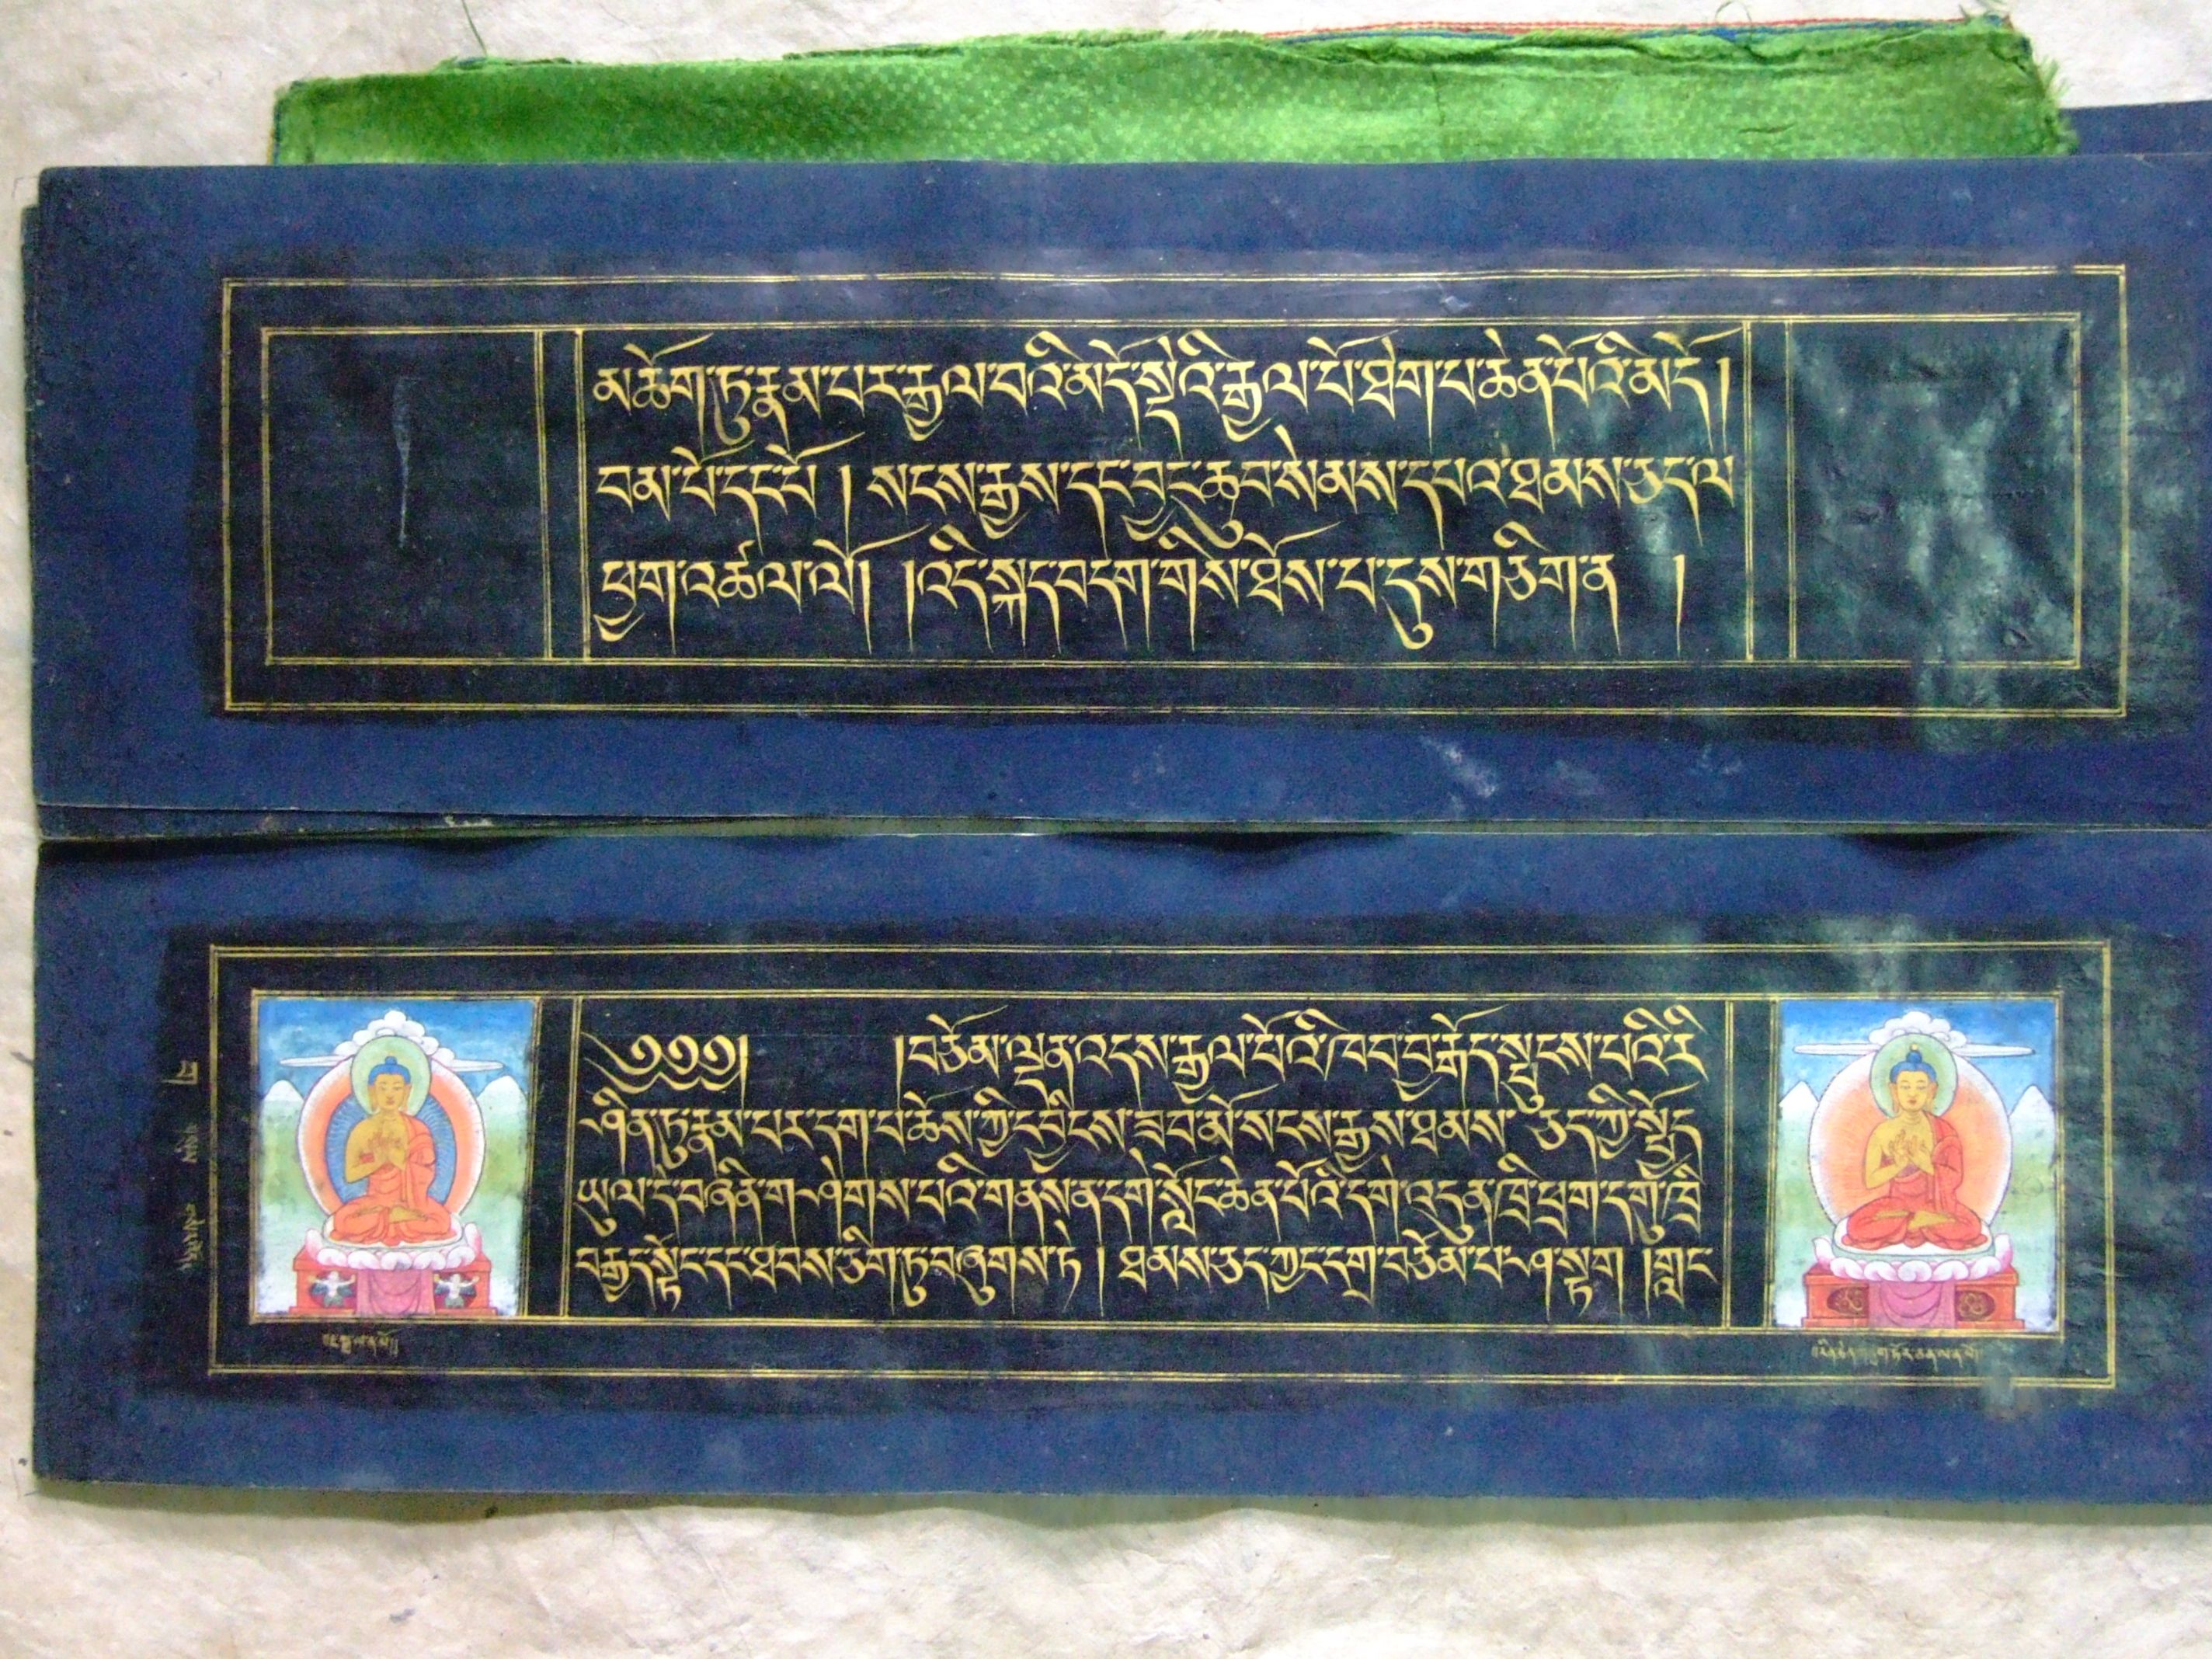 མཆོག་ཏུ་རྣམ་པར་རྒྱལ་བའི་མདོ་སྡེའི་རྒྱལ་པོ་ཐེག་པ་ཆེན་པོའི་མདོ།
བམ་པོ་དང་པོ། སངས་རྒྱས་དང་བྱང་ཆུབ་སེམས་དཔའ་ཐམས་ཅད་ལ
ཕྱག་འཚལ་ལོ། །འདི་སྐད་བདག་གིས་ཐོས་པ་དུས་གཅིག་ན །
༄༅༅། །བཅོམ་ལྡན་འདས་རྒྱལ་པོའི་ཁབ་བྱ་རྒོད་སྤུངས་པའི་རི
ཤིན་ཏུ་རྣམ་པར་དག་པ་ཆོས་ཀྱི་དབྱིངས་ཟབ་མོ་སངས་རྒྱས་ཐམས་ཅད་ཀྱི་སྤྱོད
ཡུལ་དེ་བཞིན་གཤེགས་པའི་གནས་ན་དགེ་སློང་ཆེན་པོའི་དགེ་འདུན་ཁྲི་ཕྲག་དགུ་ཁྲི
བརྒྱད་སྟོང་དང་ཐབས་ཅིག་ཏུ་བཞུགས་ཏེ། ཐམས་ཅད་ཀྱང་དགྲ་བཅོམ་པ་ཤ་སྟག །གླང